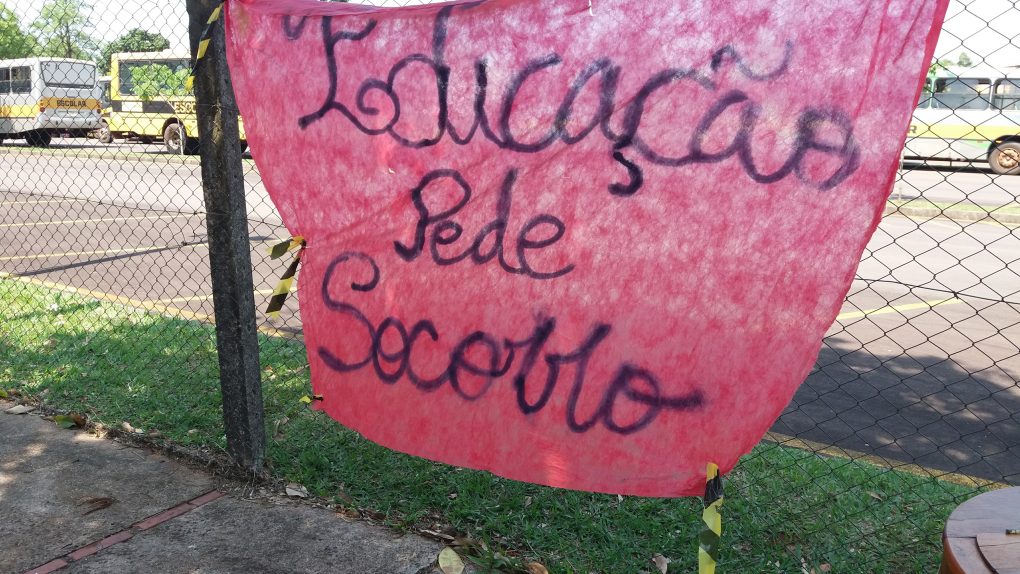 Educação
Pede
Socorro
ESCOLAR
ESCO